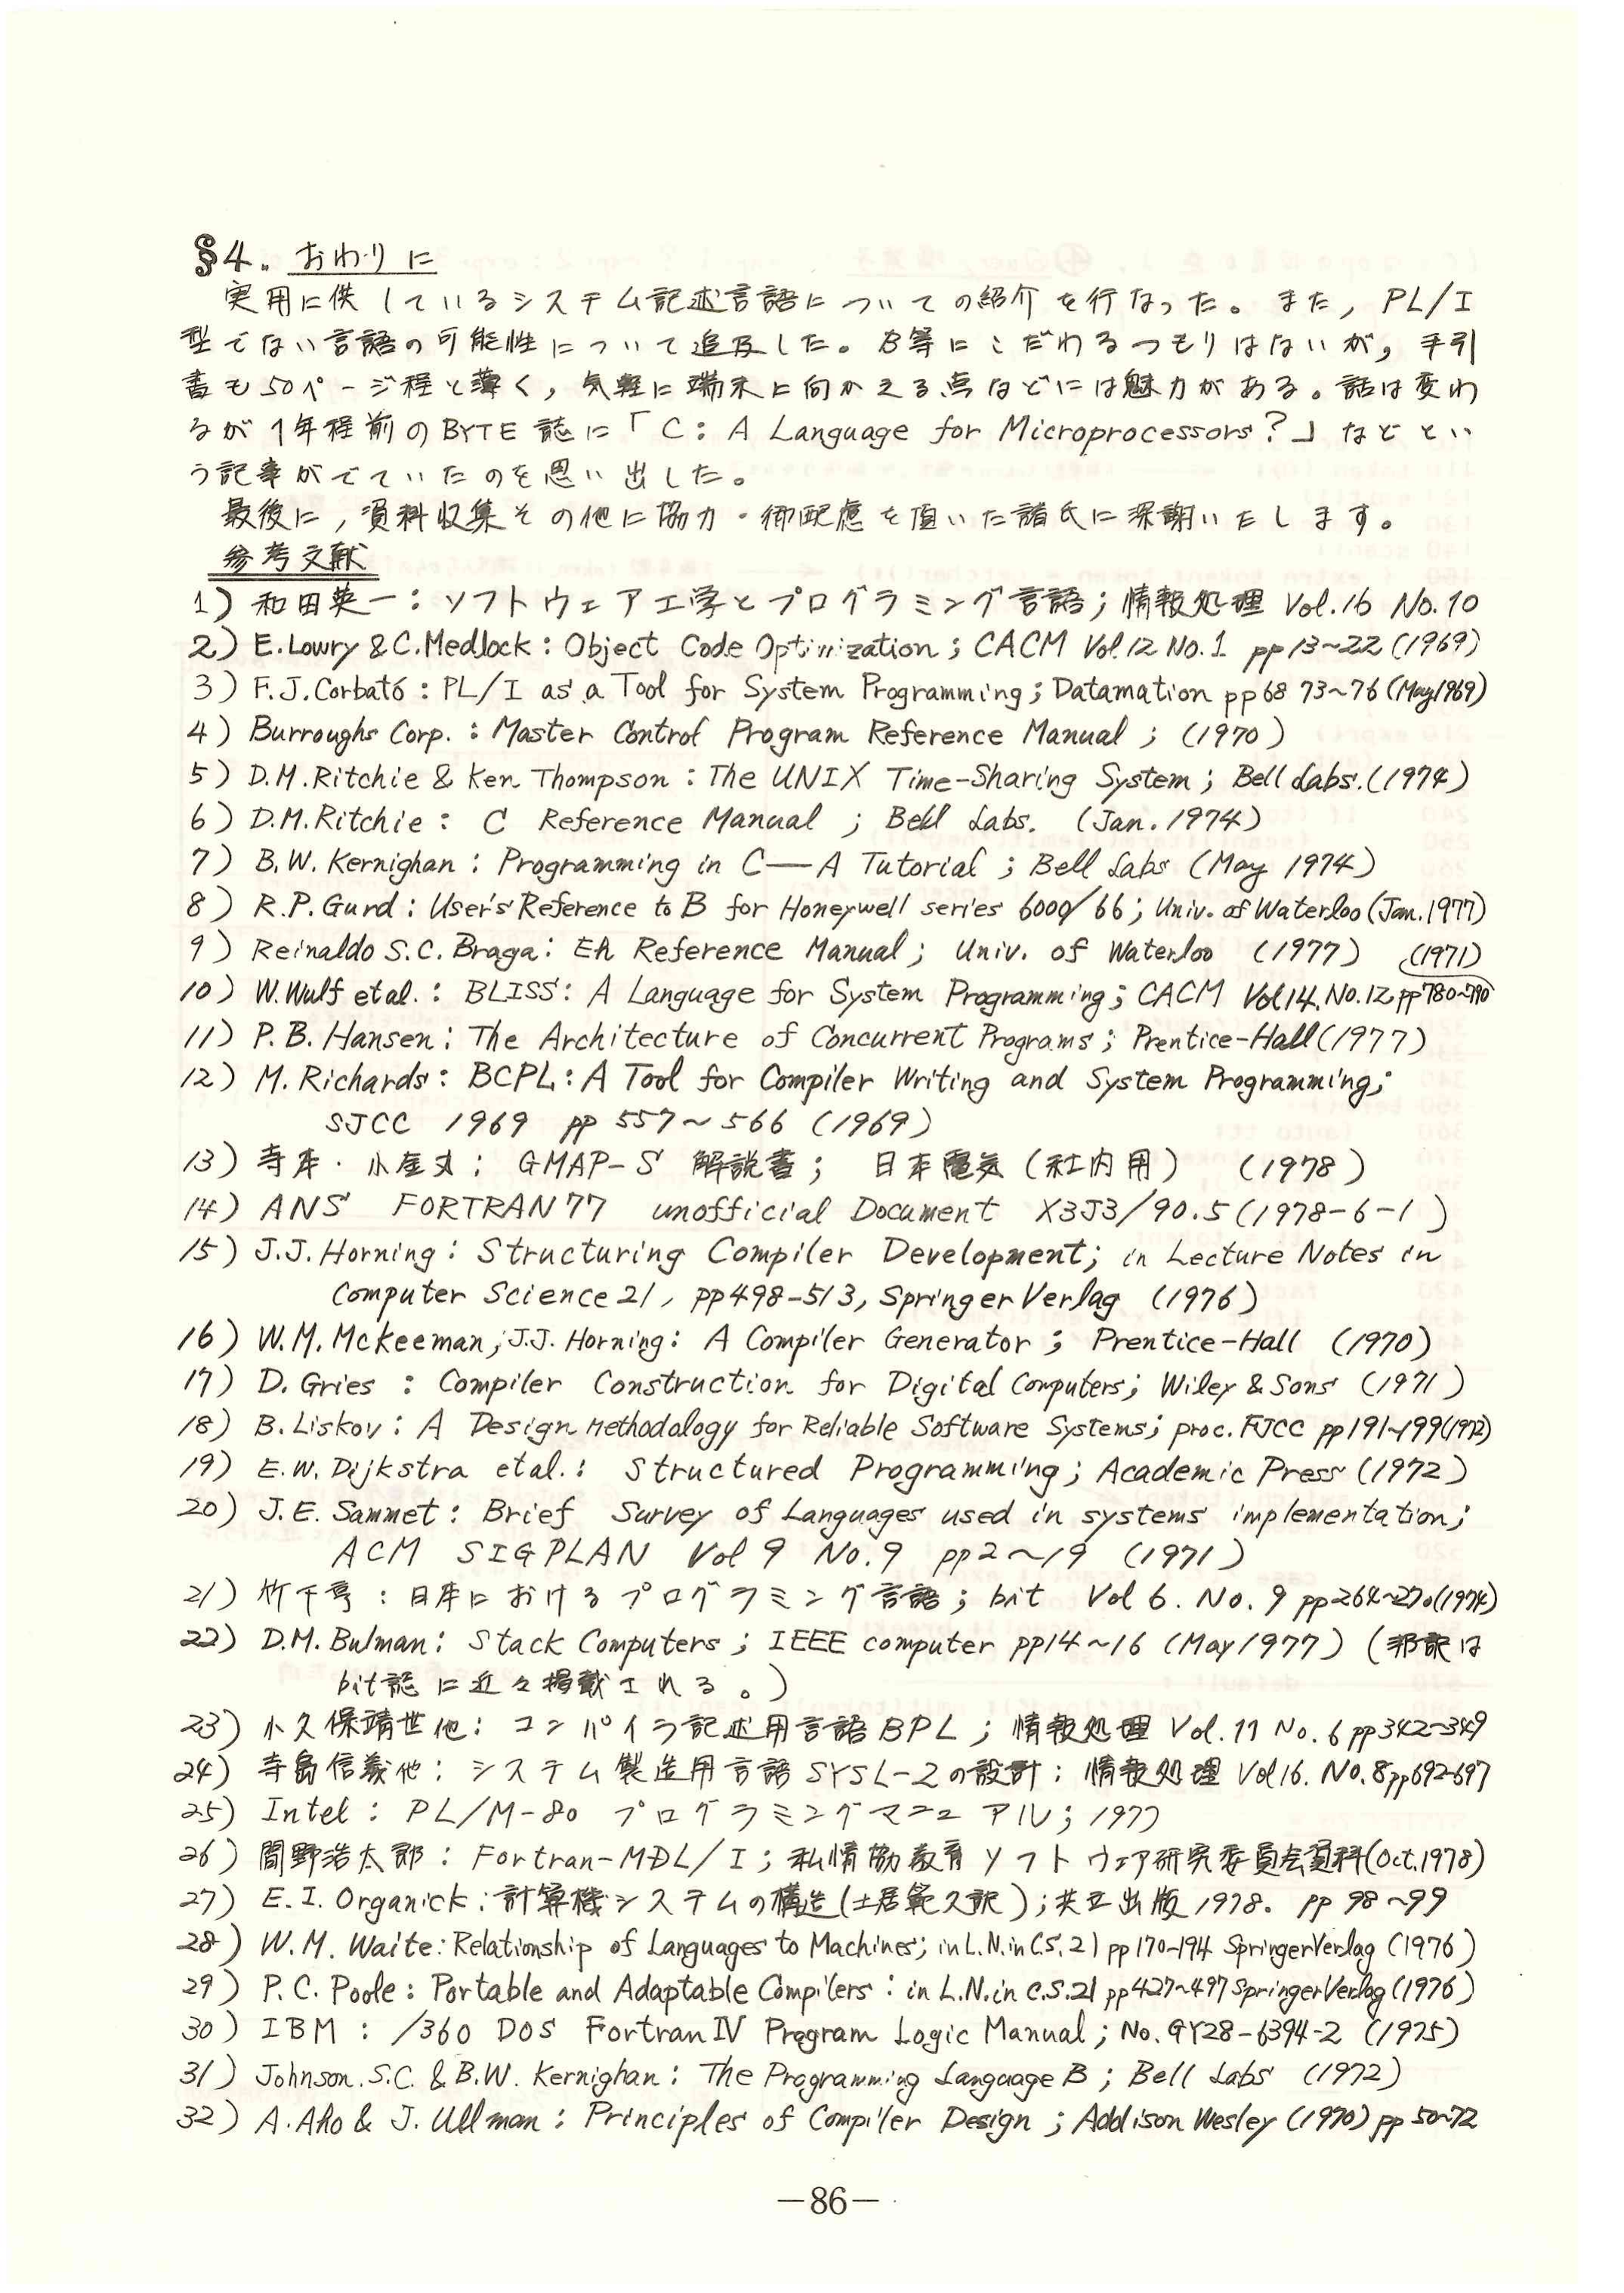 §4. おわりに
実用に供しているシステム記述言語についての紹介を行なった。また, PL/I
型でない言語の可能性について追及した。B等にこだわるつもりはないが, 手引
書も50ページ程と薄く, 気軽に端末に向かえる点などには魅力がある。話は変わ
るが1年程前のBYTE誌に「C: A Language for Microprocessors?」などとい
う記事がでていたのを思い出した。
最後に, 資料収集その他に協力・御配慮を頂いた諸氏に深謝いたします。
参考文献
1) 和田英一: ソフトウェア工学とプログラミング言語; 情報処理 Vol.16 No.10
2) E.Lowry & C.Medlock: Object Code Optimization; CACM Vol.12 No.1 pp13~22 (1969)
3) F.J.Corbató: PL/I as a Tool for System Programming; Datamation pp68 73~76 (May1969)
4) Burroughs Corp.: Master Control Program Reference Manual; (1970)
5) D.M.Ritchie & Ken Thompson: The UNIX Time-Sharing System; Bell Labs.(1974)
6) D.M.Ritchie: C Reference Manual; Bell Labs. (Jan.1974)
7) B.W. Kernighan: Programming in C—A Tutorial; Bell Labs (May 1974)
8) R.P.Gurd: User's Reference to B for Honeywell series 6000/66; Univ. of Waterloo (Jan.1977)
9) Reinaldo S.C.Braga: Eh Reference Manual; Univ. of Waterloo (1977)
10) W.Wulf et al.: BLISS: A Language for System Programming; CACM Vol14.No.12,pp780~790 (1971)
11) P.B.Hansen: The Architecture of Concurrent Programs; Prentice-Hall(1977)
12) M.Richards: BCPL: A Tool for Compiler Writing and System Programming;
SJCC 1969 pp 557~566 (1969)
13) 寺本・小金丸: GMAP-S 解説書; 日本電気 (社内用) (1978)
14) ANS FORTRAN77 unofficial Document X3J3/90.5(1978-6-1)
15) J.J.Horning: Structuring Compiler Development; in Lecture Notes in
Computer Science 21, pp498-513, Springer Verlag (1976)
16) W.M.McKeeman, J.J.Horning: A Compiler Generator; Prentice-Hall (1970)
17) D.Gries: Compiler Construction for Digital Computers; Wiley & Sons (1971)
18) B.Liskov: A Design Methodology for Reliable Software Systems; proc.FJCC pp191~199(1972)
19) E.W.Dijkstra et al.: Structured Programming; Academic Press (1972)
20) J.E.Sammet: Brief Survey of Languages used in systems implementation;
ACM SIGPLAN Vol 9 No.9 pp2~19 (1971)
21) 竹下亨: 日本におけるプログラミング言語; bit Vol 6. No.9 pp264~270(1974)
22) D.M.Bulman: Stack Computers; IEEE computer pp14~16 (May1977) (邦訳は
bit誌に近々掲載される。)
23) 小久保靖世他: コンパイラ記述用言語BPL; 情報処理 Vol.11 No.6 pp342~349
24) 寺島信義他: システム製造用言語SYSL-2の設計: 情報処理 Vol16. No.8pp692-697
25) Intel: PL/M-80 プログラミングマニュアル; 1977
26) 間野浩太郎: Fortran-MDL/I; 私情協教育ソフトウェア研究委員会資料(Oct.1978)
27) E.I.Organick: 計算機システムの構造(土居範久訳); 共立出版1978. pp 98~99
28) W.M.Waite: Relationship of Languages to Machines; in L.N.in C.S.21 pp170~194 Springer Verlag (1976)
29) P.C.Poole: Portable and Adaptable Compilers: in L.N.in C.S.21 pp427~497 Springer Verlag (1976)
30) IBM: /360 DOS Fortran IV Program Logic Manual; No.GY28-6394-2 (1975)
31) Johnson.S.C. & B.W.Kernighan: The Programming Language B; Bell Labs (1972)
32) A.Aho & J.Ullman: Principles of Compiler Design; Addison Wesley (1970) pp 50~72
—86—